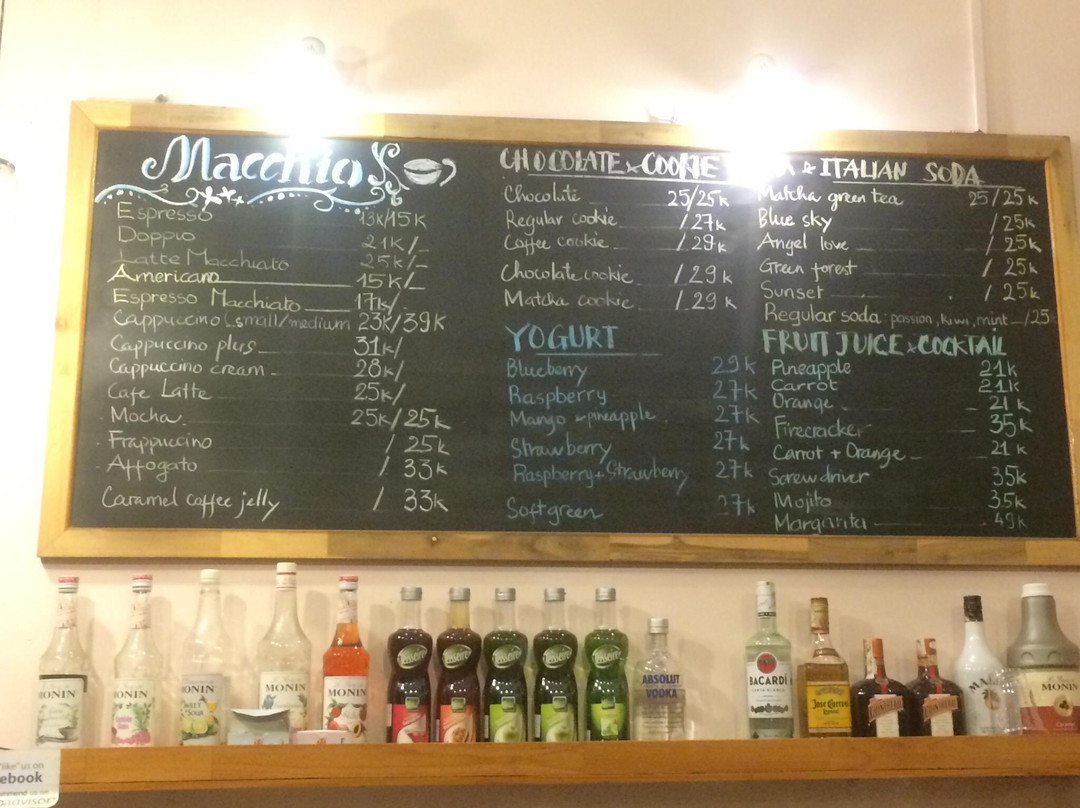 Macchio
Espresso 13k/15k
Doppio 21k/_
Latte Macchiato 25k/_
Americano 15k/_
Espresso Macchiato 17k/
Cappuccino (small/medium 23k/39k
Cappuccino plus 31k/
Cappuccino cream 28k/
Cafe Latte 25k/
Mocha 25k/25k
Frappuccino / 25k
Affogato / 33k
Caramel coffee jelly / 33k
CHOCOLATE & COOKIE
Chocolate 25/25k
Regular cookie /27k
Coffee cookie /29k
Chocolate cookie /29k
Matcha cookie /29k
YOGURT
Blueberry 29k
Raspberry 27k
Mango - pineapple 27k
Strawberry 27k
Raspberry + Strawberry 27k
Softgreen 27k
& ITALIAN SODA
Matcha green tea 25/25k
Blue sky / 25k
Angel love / 25k
Green forest / 25k
Sunset / 25k
Regular soda: passion, kiwi, mint /25
FRUIT JUICE & COCKTAIL
Pineapple 21k
Carrot 21k
Orange 21k
Firecracker 35k
Carrot + Orange 21k
Screwdriver 35k
Mojito 35k
Margarita 49k
MONIN
MONIN
MONIN
SWEET & SOUR
MONIN
MONIN
Teisseire
Teisseire
Teisseire
Teisseire
Teisseire
ABSOLUT
VODKA
BACARDI
Jose Cuervo
MONIN
"like" us on
ebook